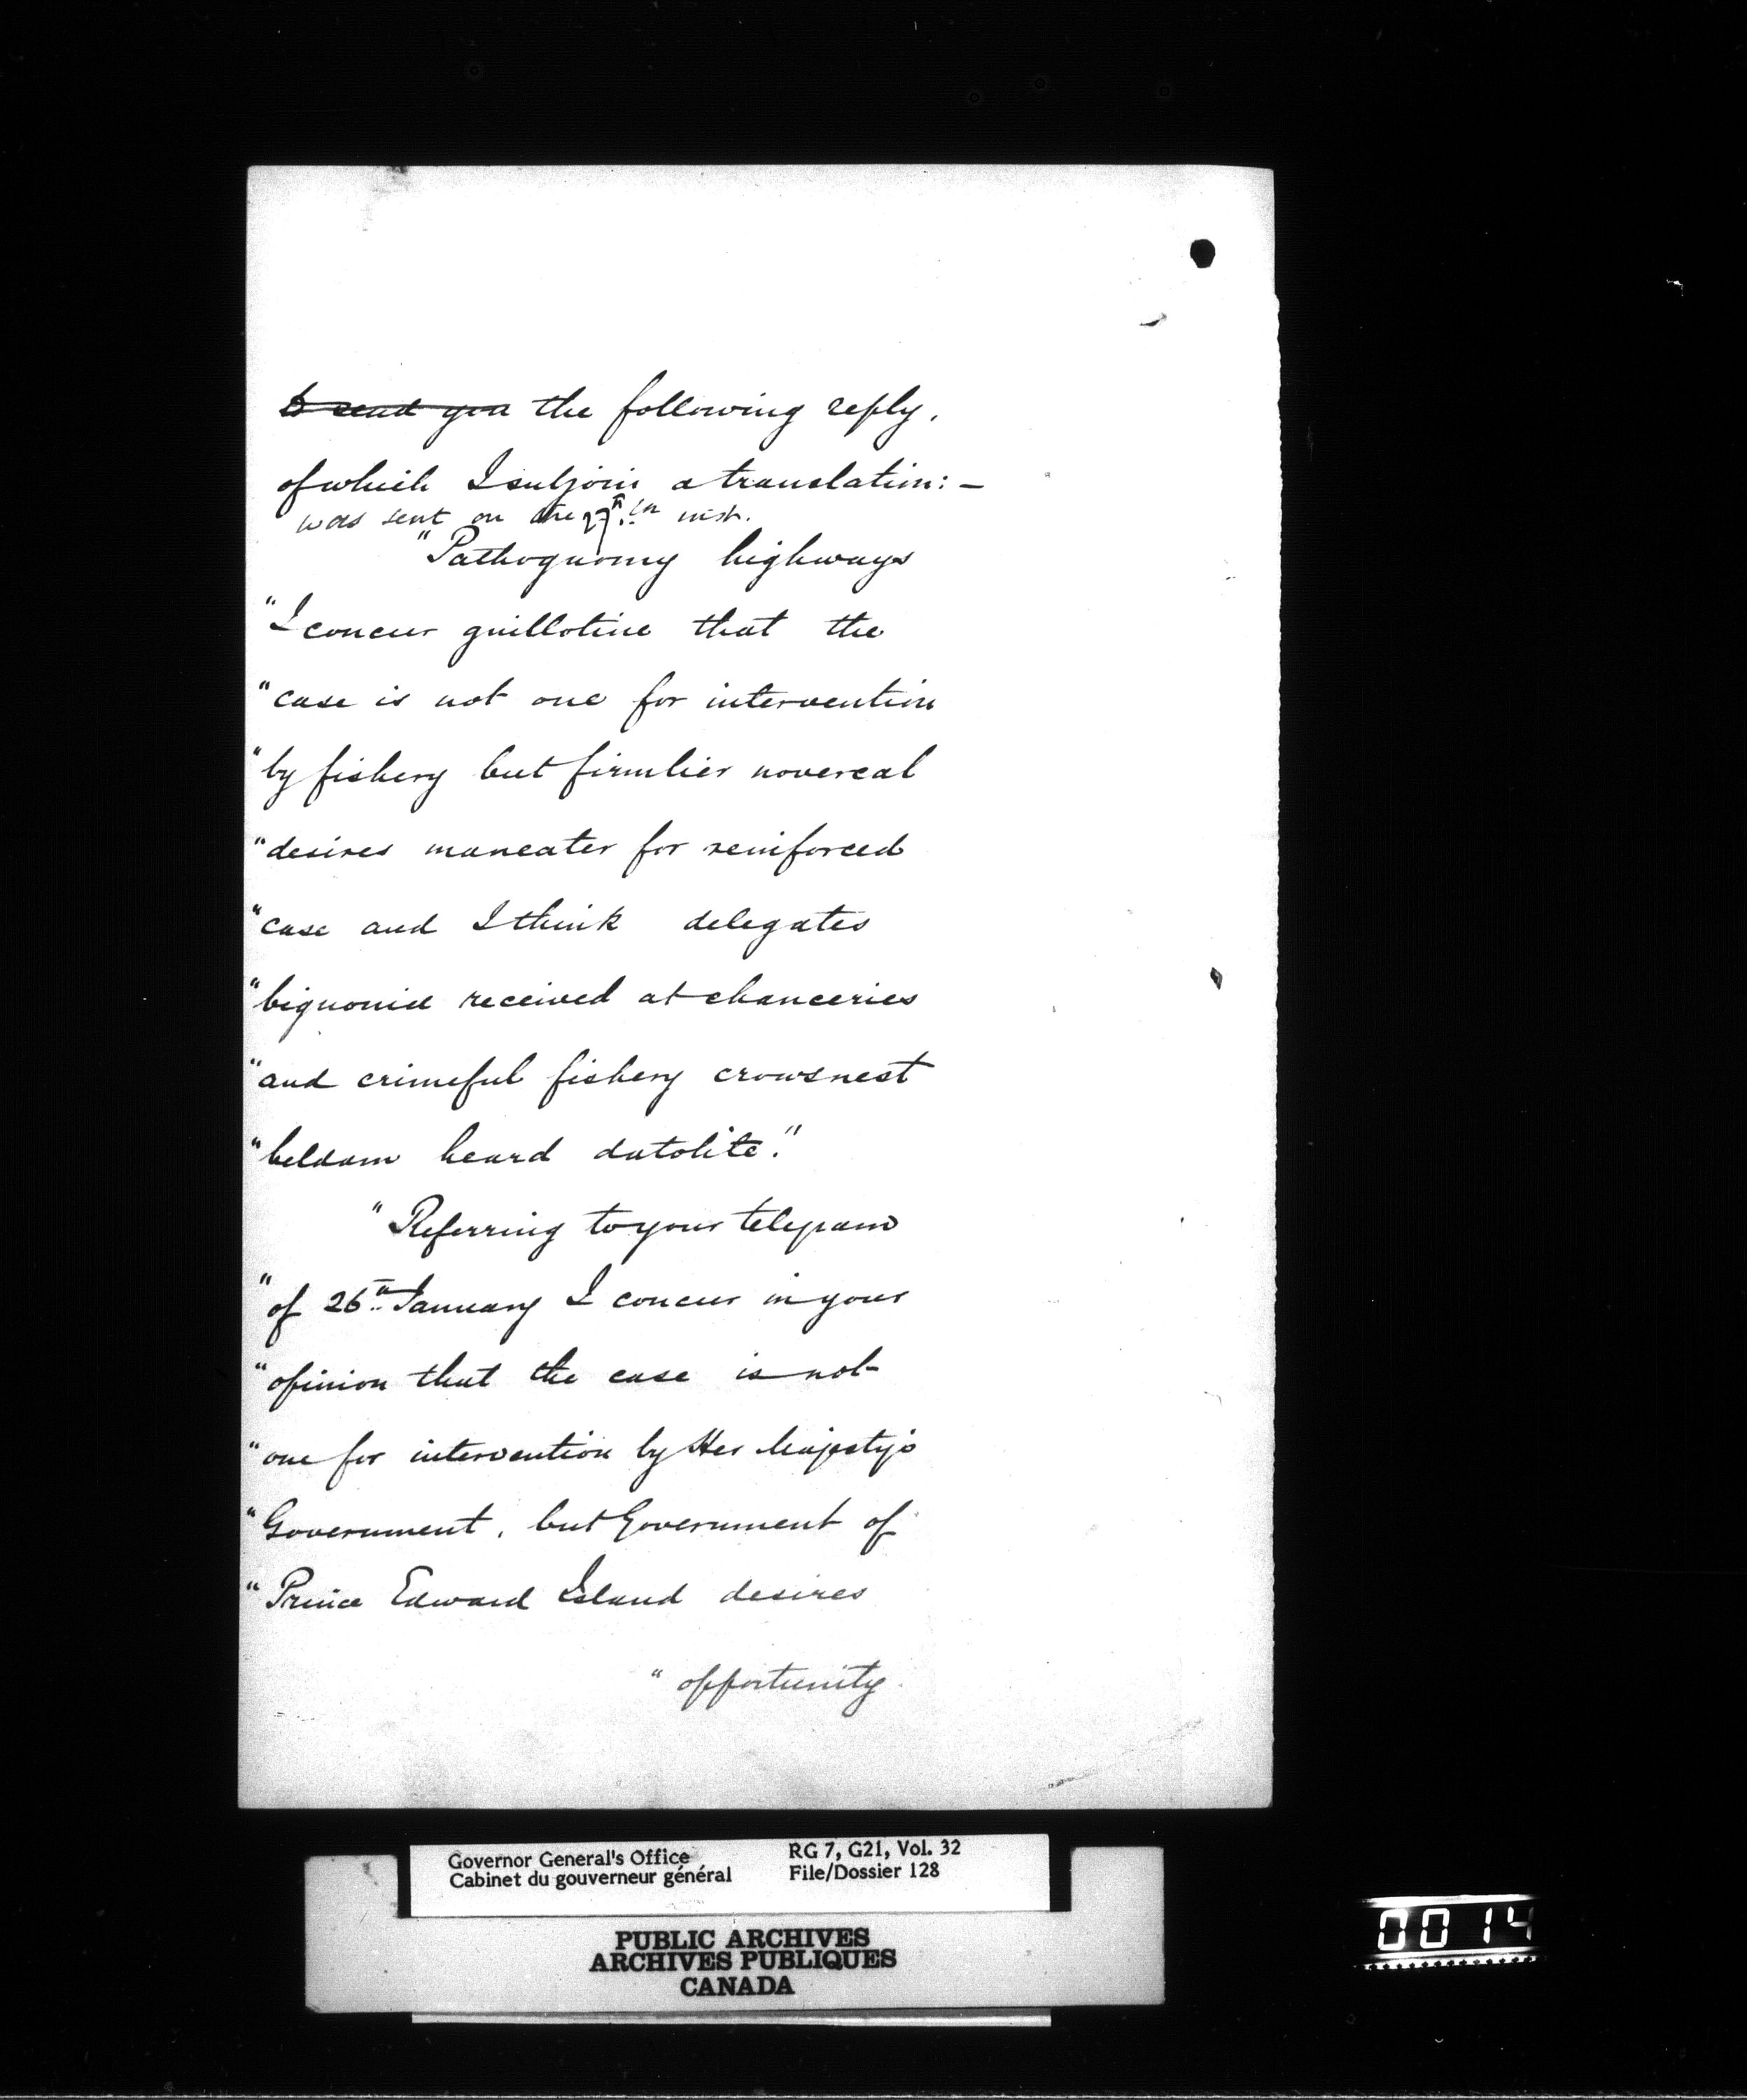 to send you the following reply,
of which I subjoin a translation:—
was sent on the 27th inst.
"Pathognomy highways
"I concur guillotine that the
"case is not one for intervention
"by fishery but firmlier novercal
"desires maneater for reinforced
"case and I think delegates
"bignonia received at chanceries
"and crimeful fishery crowsnest
"beldam heard datolite."
"Referring to your telegram
"of 26th January I concur in your
"opinion that the case is not
"one for intervention by Her Majesty's
"Government, but Government of
"Prince Edward Island desires
"opportunity
Governor General's Office RG 7, G21, Vol. 32
Cabinet du gouverneur général File/Dossier 128
PUBLIC ARCHIVES
ARCHIVES PUBLIQUES
CANADA
0014